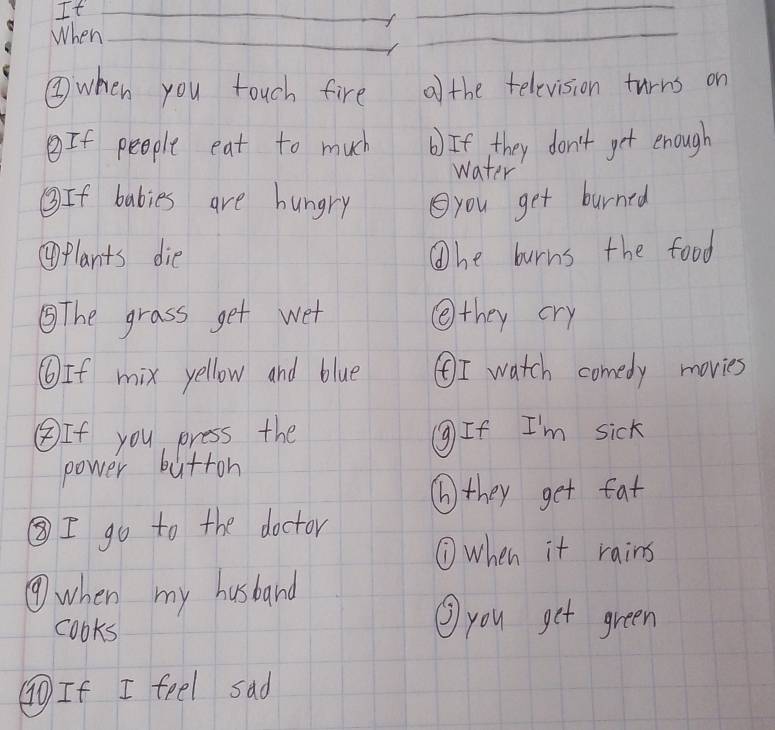 If ________, ________
When ________, ________
① When you touch fire
② If people eat to much
③ If babies are hungry
④ Plants die
⑤ The grass get wet
⑥ If mix yellow and blue
⑦ If you press the
power button
⑧ I go to the doctor
⑨ When my husband
cooks
⑩ If I feel sad
ⓐ the television turns on
ⓑ If they don't get enough
water
ⓒ you get burned
ⓓ he burns the food
ⓔ they cry
ⓕ I watch comedy movies
ⓖ If I'm sick
ⓗ they get fat
ⓘ When it rains
ⓙ you get green